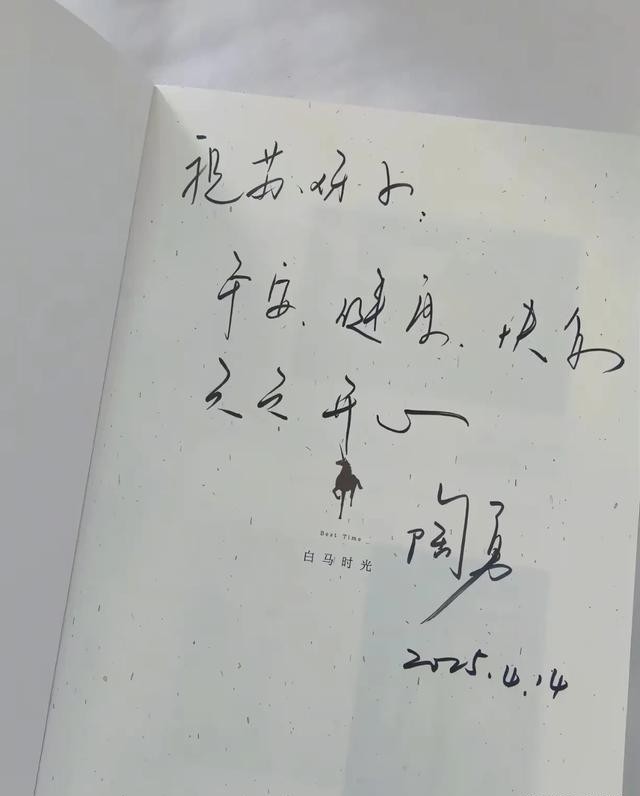 祝苏
平安、健康、快乐
天天开心
Best Time
白马时光
陶勇
2025.4.14